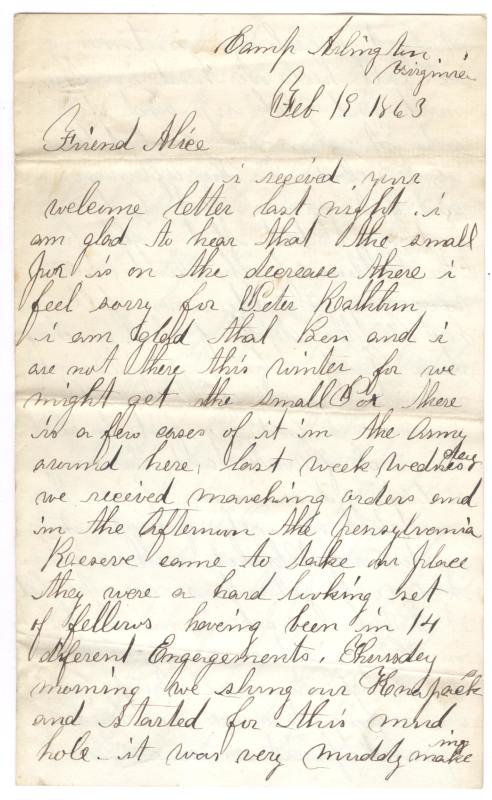 Camp Arlington
Virginia
Feb 19 1863
Friend Alice
i receivd your
welcome letter last night. i
am glad to hear that the small
Pox is on the decrease there i
feel sorry for Peter Rathbun
i am glad that Ben and i
are not there this winter for we
might get the small Pox there
is a few cases of it in the Army
around here, last week Wednesday
we received marching orders and
in the Afternoon the Pensylvania
Raeserve came to take our place
they were a hard looking set
of fellows haveing been in 14
diferent Engergements. Thursdey
morning we slung our Knapsack
and started for this mud
hole. it was very muddy makeing